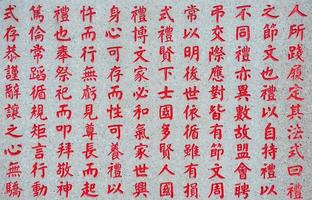 人所踐履定其法式曰禮
之節文也禮以自持禮以
不同禮亦異數故盟會聘
弔交際應對皆有節文周
常以明後世依循雖有損
式禮賢下士國多賢人國
禮博文家必和氣家世興
身心可存而性可養禮以
忤而行無虧見尊長而起
禮也奉祭祀而叩拜敬神
篤倫常蹈循規矩言行動
式存恭謹辭讓之心無驕